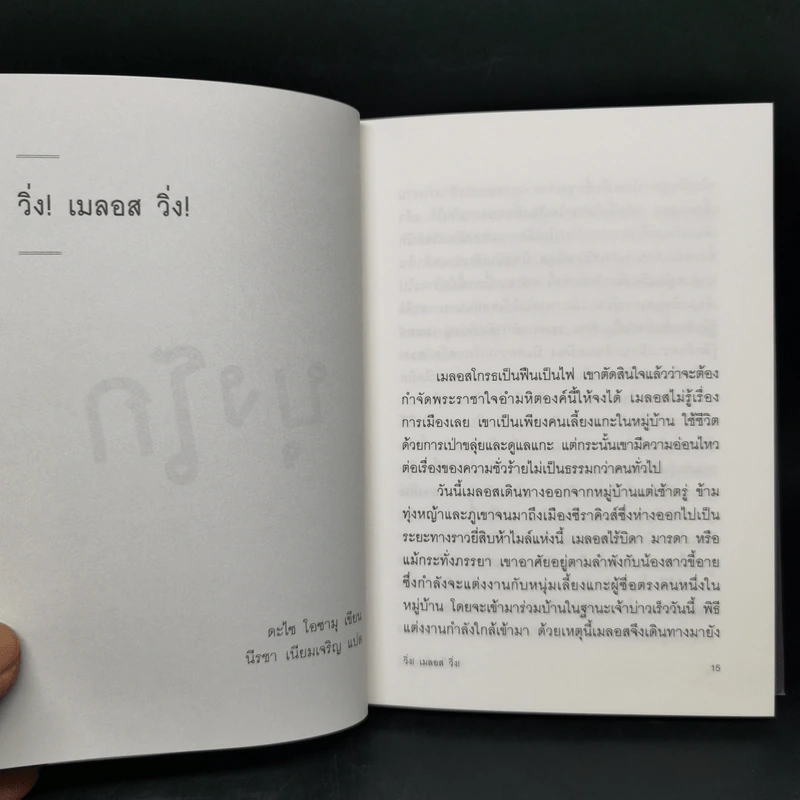 วิ่ง! เมลอส วิ่ง!
ดะไซ โอซามุ เขียน
นีรชา เนียมเจริญ แปล
เมลอสโกรธเป็นฟืนเป็นไฟ เขาตัดสินใจแล้วว่าจะต้อง
กำจัดพระราชาใจอำมหิตองค์นี้ให้จงได้ เมลอสไม่รู้เรื่อง
การเมืองเลย เขาเป็นเพียงคนเลี้ยงแกะในหมู่บ้าน ใช้ชีวิต
ด้วยการเป่าขลุ่ยและดูแลแกะ แต่กระนั้นเขามีความอ่อนไหว
ต่อเรื่องของความชั่วร้ายไม่เป็นธรรมกว่าคนทั่วไป
วันนี้เมลอสเดินทางออกจากหมู่บ้านแต่เช้าตรู่ ข้าม
ทุ่งหญ้าและภูเขาจนมาถึงเมืองซีราคิวส์ซึ่งห่างออกไปเป็น
ระยะทางราวยี่สิบห้าไมล์แห่งนี้ เมลอสไร้บิดา มารดา หรือ
แม้กระทั่งภรรยา เขาอาศัยอยู่ตามลำพังกับน้องสาวขี้อาย
ซึ่งกำลังจะแต่งงานกับหนุ่มเลี้ยงแกะผู้ซื่อตรงคนหนึ่งใน
หมู่บ้าน โดยจะเข้ามาร่วมบ้านในฐานะเจ้าบ่าวเร็ววันนี้ พิธี
แต่งงานกำลังใกล้เข้ามา ด้วยเหตุนี้เมลอสจึงเดินทางมายัง
วิ่ง! เมลอส วิ่ง!
15